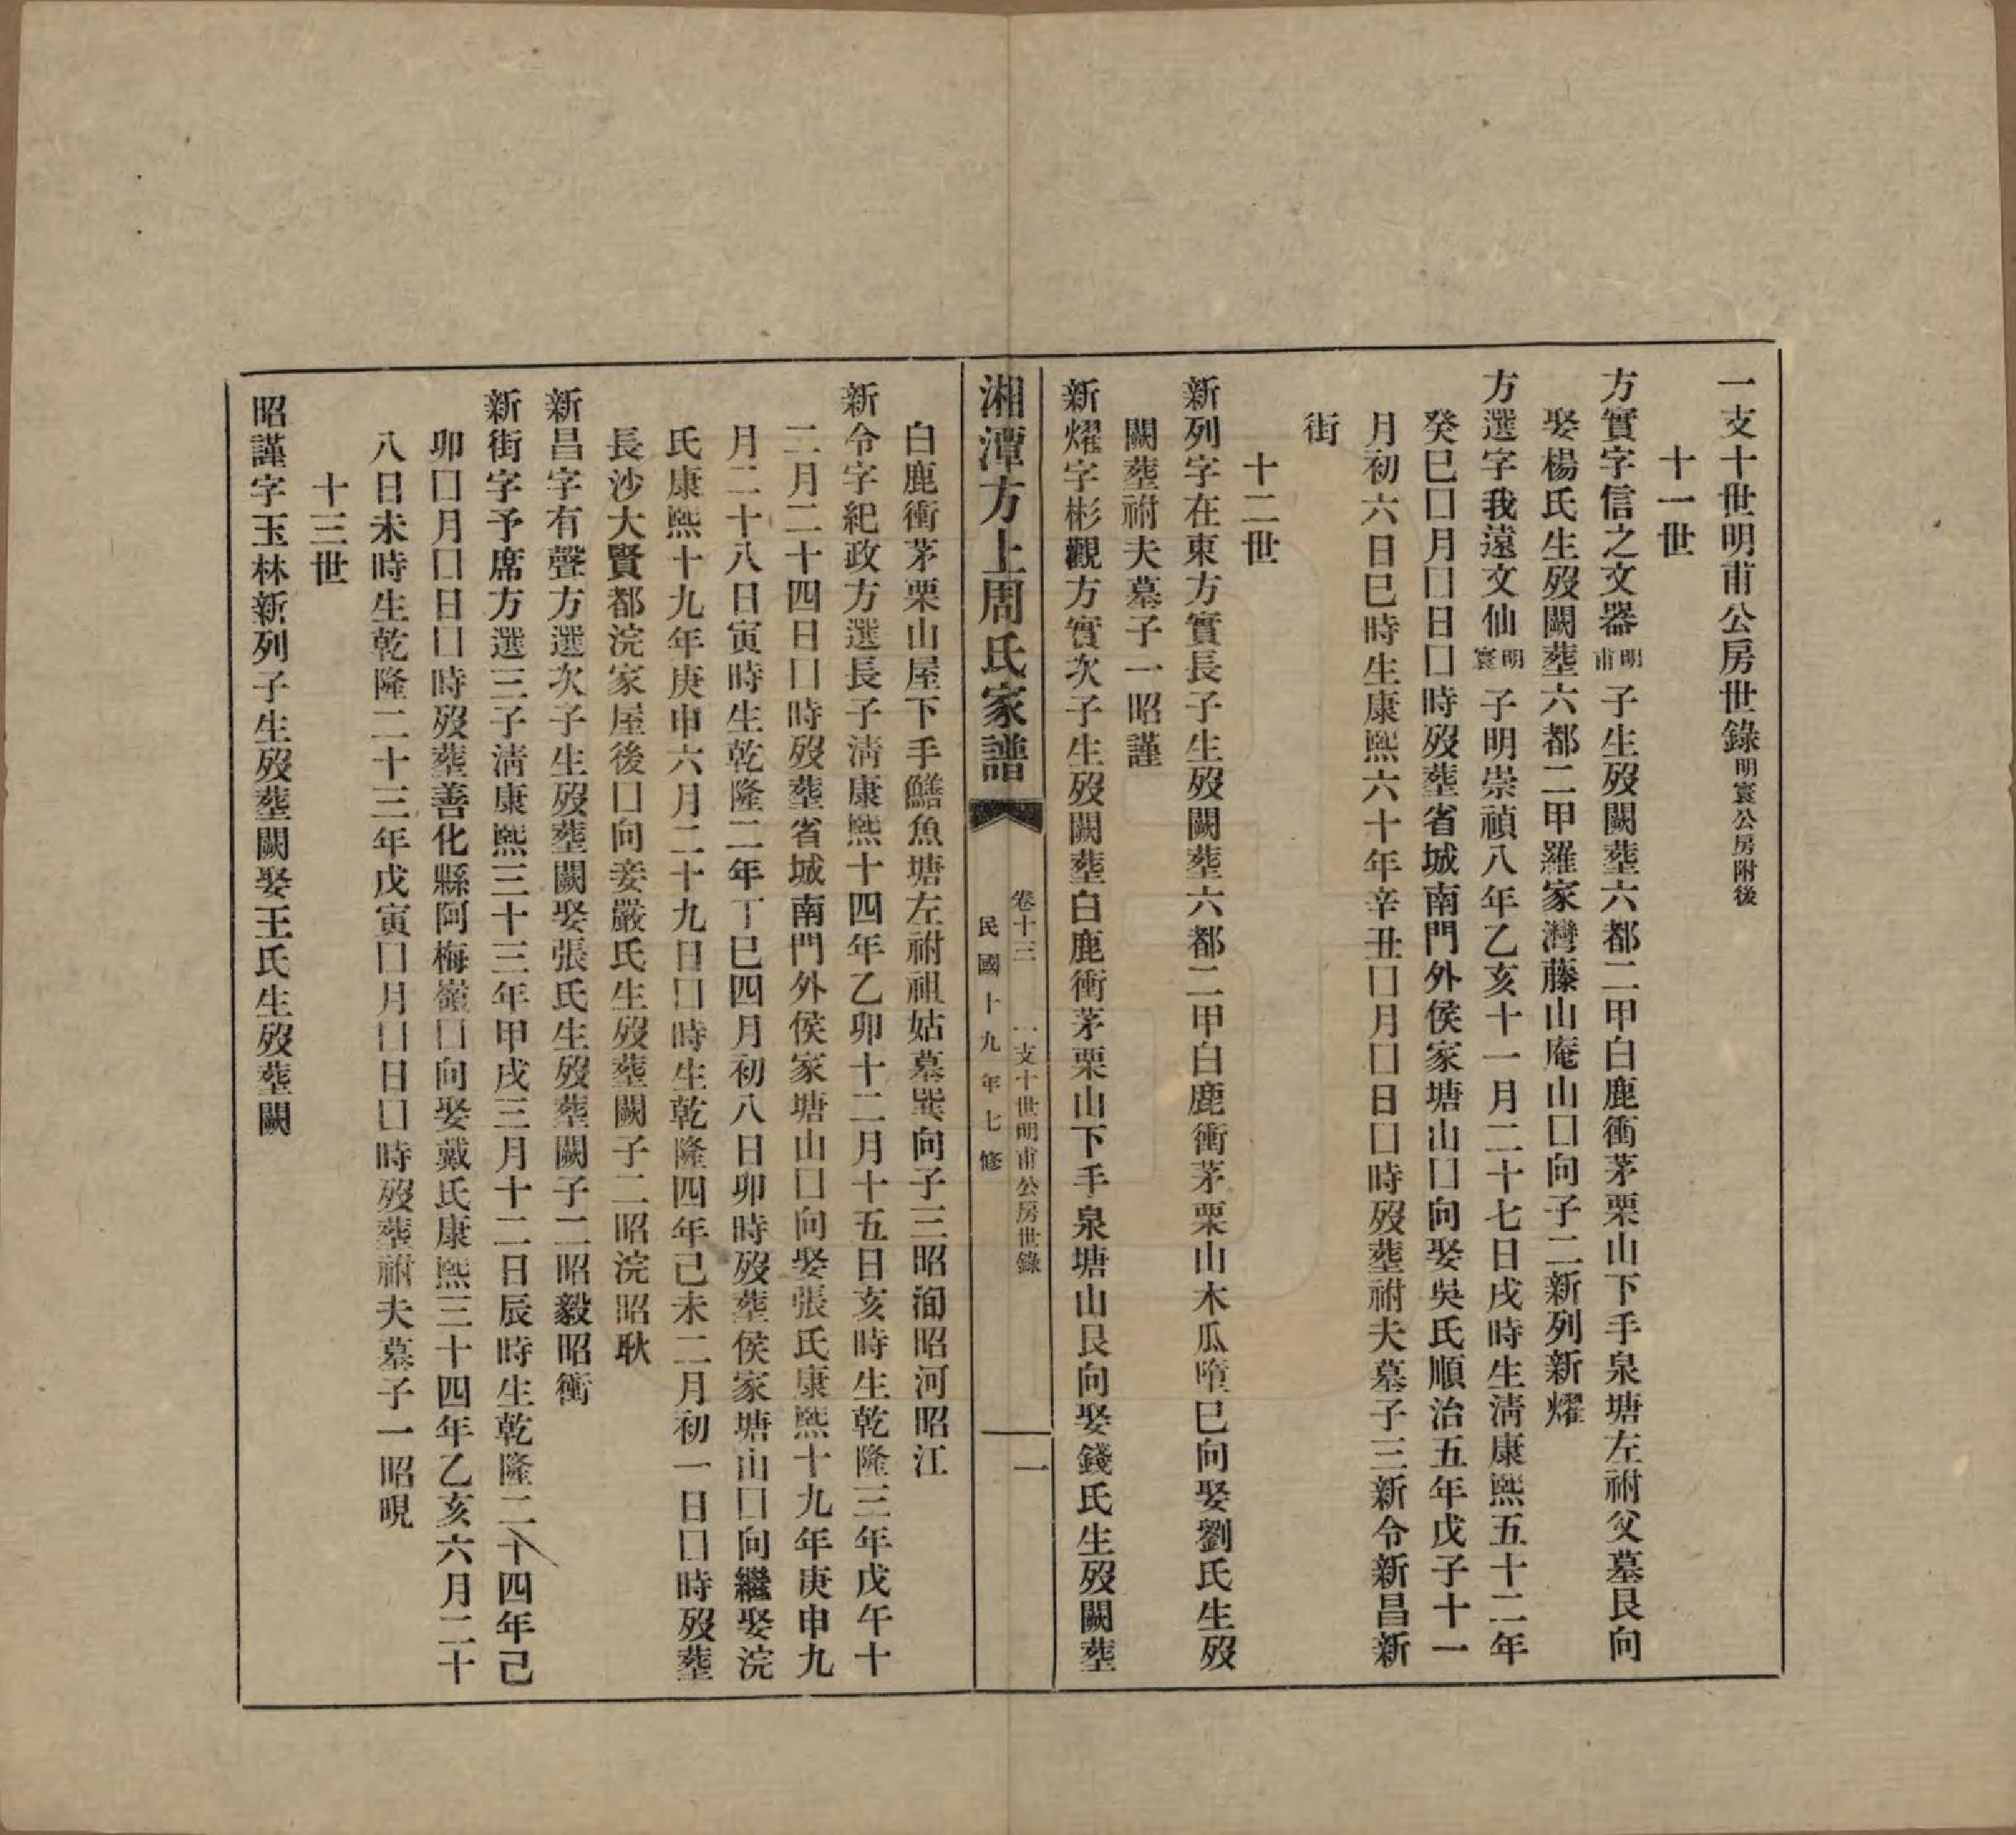 一支十世明甫公房世錄明寰公房附後
十一世
方實字信之文器明甫子生歿闕葬六都二甲白鹿衝茅栗山下手泉塘左祔父墓艮向
娶楊氏生歿闕葬六都二甲羅家灣藤山庵山囗向子二新列新燿
方選字我遠文仙明寰子明崇禎八年乙亥十一月二十七日戌時生淸康熙五十二年
癸巳囗月囗日囗時歿葬省城南門外侯家塘山囗向娶吳氏順治五年戊子十一
月初六日巳時生康熙六十年辛丑囗月囗日囗時歿葬祔夫墓子三新令新昌新
街
十二世
新列字在東方實長子生歿闕葬六都二甲白鹿衝茅栗山木瓜墮巳向娶劉氏生歿
闕葬祔夫墓子一昭謹
新燿字彬觀方實次子生歿闕葬白鹿衝茅栗山下手泉塘山艮向娶錢氏生歿闕葬
湘潭方上周氏家譜
卷十三 一支十世明甫公房世錄
民國十九年七修
一
白鹿衝茅栗山屋下手鱔魚塘左祔祖姑墓巽向子三昭洵昭河昭江
新令字紀政方選長子淸康熙十四年乙卯十二月十五日亥時生乾隆三年戊午十
二月二十四日囗時歿葬省城南門外侯家塘山囗向娶張氏康熙十九年庚申九
月二十八日寅時生乾隆二年丁巳四月初八日卯時歿葬侯家塘山囗向繼娶浣
氏康熙十九年庚申六月二十九日囗時生乾隆四年己未二月初一日囗時歿葬
長沙大賢都浣家屋後囗向妾嚴氏生歿葬闕子二昭浣昭耿
新昌字有聲方選次子生歿葬闕娶張氏生歿葬闕子二昭毅昭衝
新街字予席方選三子淸康熙三十三年甲戌三月十二日辰時生乾隆二十四年己
卯囗月囗日囗時歿葬善化縣阿梅嶺囗向娶戴氏康熙三十四年乙亥六月二十
八日未時生乾隆二十三年戊寅囗月囗日囗時歿葬祔夫墓子一昭晛
十三世
昭謹字玉林新列子生歿葬闕娶王氏生歿葬闕